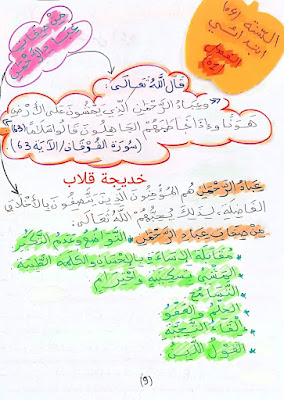 السنة (05)
ابتدائي
الفصل
(02)
من صفات
عباد الرحمن
قَالَ اللَّهُ تَعَالَى:
"وَعِبَادُ الرَّحْمَنِ الَّذِينَ يَمْشُونَ عَلَى الْأَرْضِ
هَوْنًا وَإِذَا خَاطَبَهُمُ الْجَاهِلُونَ قَالُوا سَلَامًا (63)"
(سُورَةُ الفُرْقَان/الآية 63)
خديجة قلاب
عِبَادُ الرَّحْمَنِ هُم المُؤْمِنُونَ الَّذِينَ يَتَّصِفُونَ بِالأَخْلَاقِ
الفَاضِلَة، لِذَلِكَ يُحِبُّهُمُ اللَّهُ تَعَالَى.
مِنْ صِفَاتِ عِبَادِ الرَّحْمَنِ: * التَّوَاضُعُ وَعَدَمُ التَّكَبُّرِ
* مُقَابَلَةُ الإِسَاءَةِ بِالإِحْسَانِ وَالكَلِمَةِ الطَّيِّبَةِ
* المَشْيُ بِسَكِينَةٍ وَاحْتِرَامٍ
* التَّسَامُحُ
* الحِلْمُ وَالعَفْوُ
* إِلْقَاءُ التَّحِيَّةِ
* القَوْلُ اللَّيِّنُ.
(9)